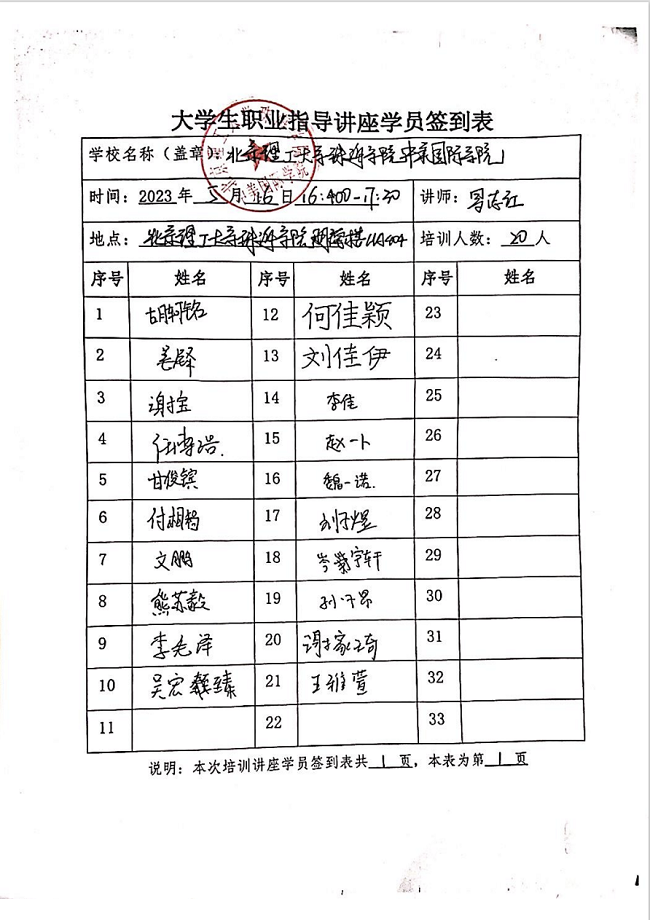 大学生职业指导讲座学员签到表
学校名称（盖章）北京理工大学珠海学院中美国际学院
时间：2023 年 5 月 16 日 16:400-17:30 讲师：
地点：北京理工大学珠海学院 培训人数：20 人
序号 姓名 序号 姓名 序号 姓名
1 12 何佳颖 23
2 13 刘佳伊 24
3 14 李佳 25
4 任博浩. 15 赵一卜 26
5 甘俊镔 16 魏一诺. 27
6 付湘 17 刘子煜 28
7 文鹏 18 29
8 熊苏毅 19 30
9 李先泽 20 谢家琦 31
10 吴宏 臻 21 王雅萱 32
11 22 33
说明：本次培训讲座学员签到表共 1 页，本表为第 1 页